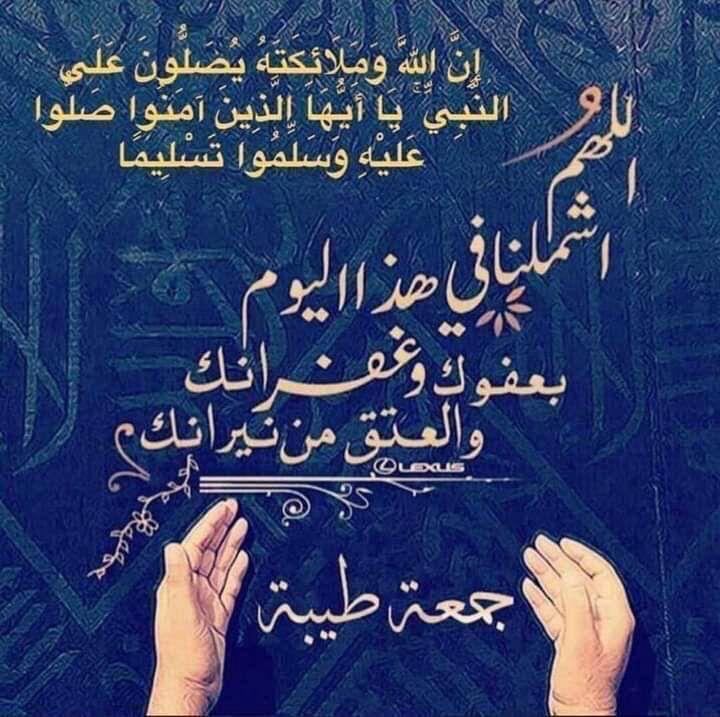 إِنَّ اللَّهَ وَمَلَائِكَتَهُ يُصَلُّونَ عَلَى
النَّبِيِّ ۚ يَا أَيُّهَا الَّذِينَ آمَنُوا صَلُّوا
عَلَيْهِ وَسَلِّمُوا تَسْلِيمًا
اللهم
اشملنا في هذا اليوم
بعفوك وغفرانك
والعتق من نيرانك
LEXUS
جمعة طيبة